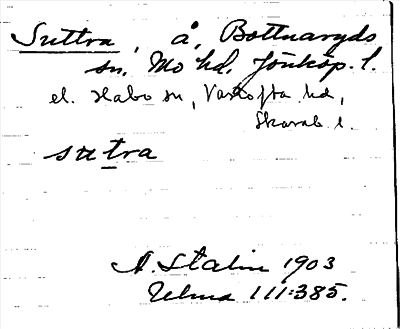 Suttra, å, Bottnaryds
sn. Mo hd. Jönköp. l.
el. Habo sn, Vartofta hd,
Skarab. l.
sutra
A. Stalin 1903
Ulma 111:385.